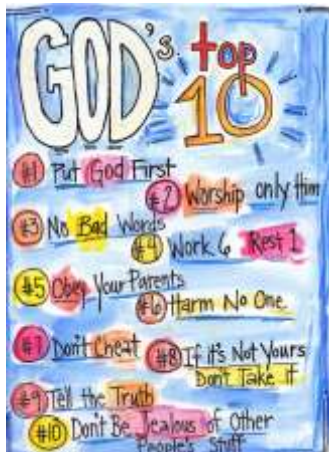 GOD's top
10
#1 Put God First
#2 Worship only Him
#3 No Bad Words
#4 Work 6 Rest 1
#5 Obey Your Parents
#6 Harm No One.
#7 Don't Cheat
#8 If it's Not Yours
Don't Take it
#9 Tell the Truth
#10 Don't Be Jealous of Other
People's Stuff